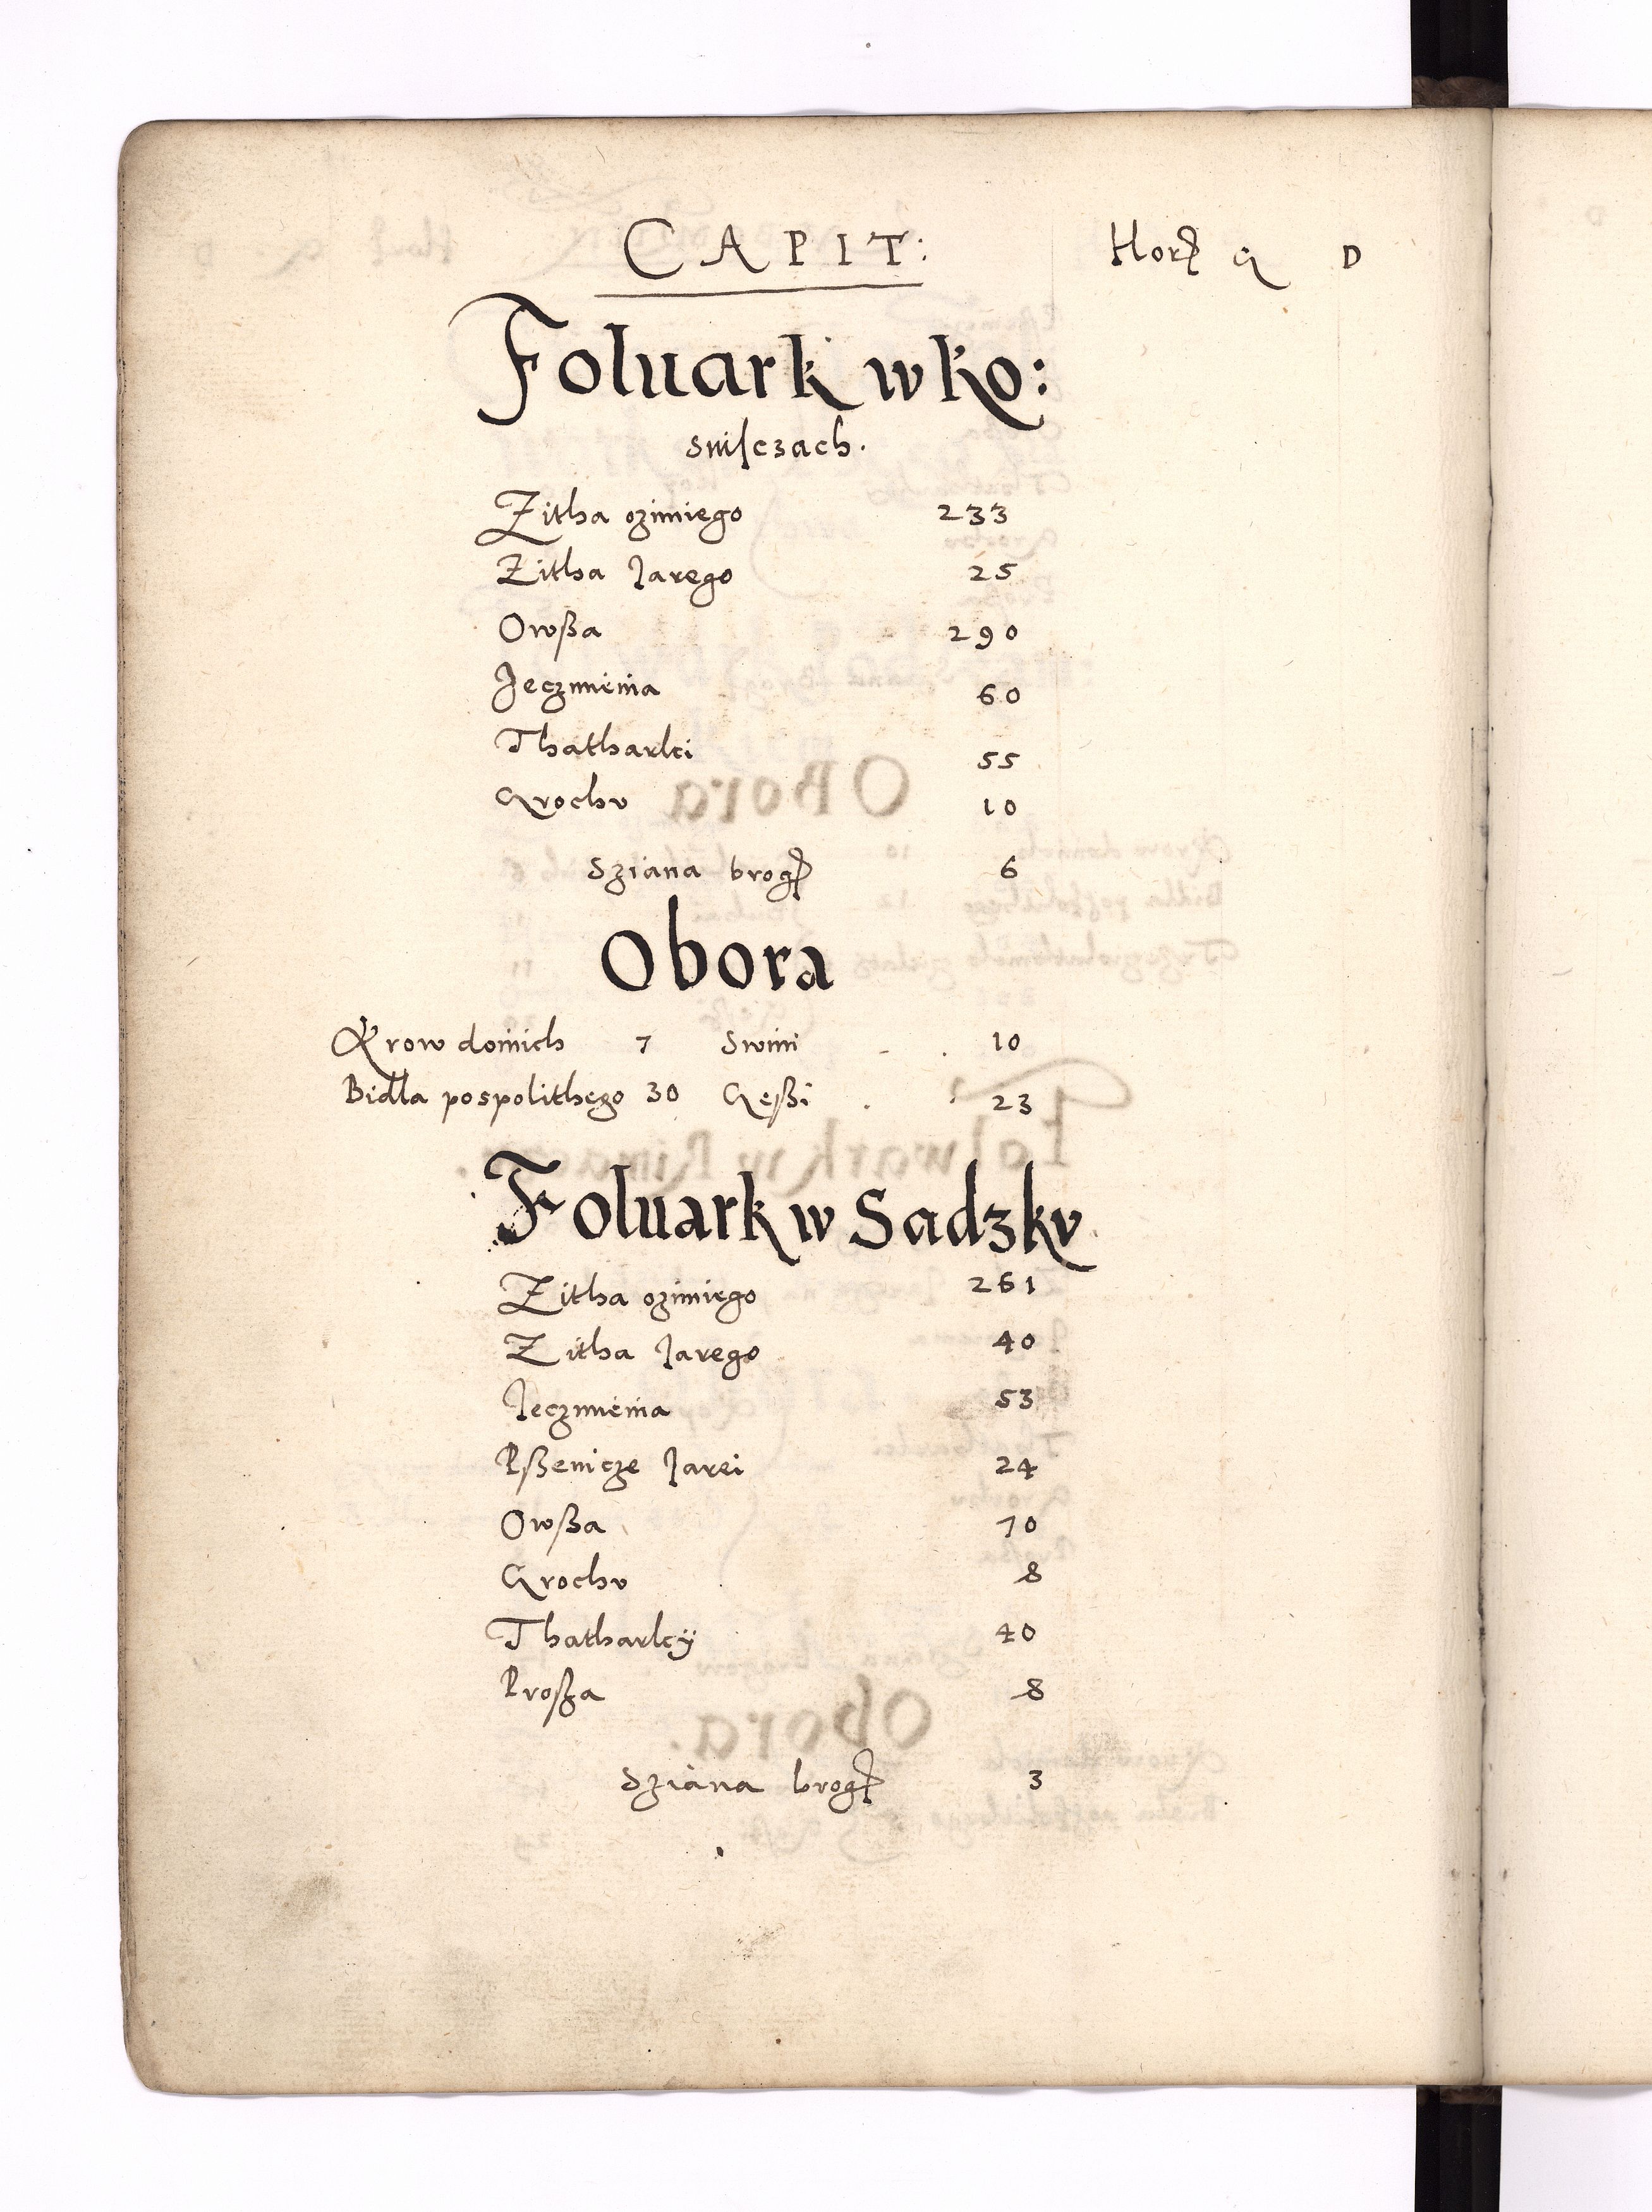 CAPIT: Flor G D
Foluark w Ko:
snisczach.
Zitha ozimiego 233
Zitha Jarego 25
Owßa 290
Jeczmienia 60
Thatharki 55
Grochv 10
Sziana brog 6
Obora
Krow doinich 7 Swini 10
Bidla pospolithego 30 Gęßi 23
Foluark w Sadzkv
Zitha ozimiego 261
Zitha Jarego 40
Jeczmienia 53
Pßenicze Jarei 24
Owßa 70
Grochv 8
Thatharkÿ 40
Proßa 8
Sziana brog 3